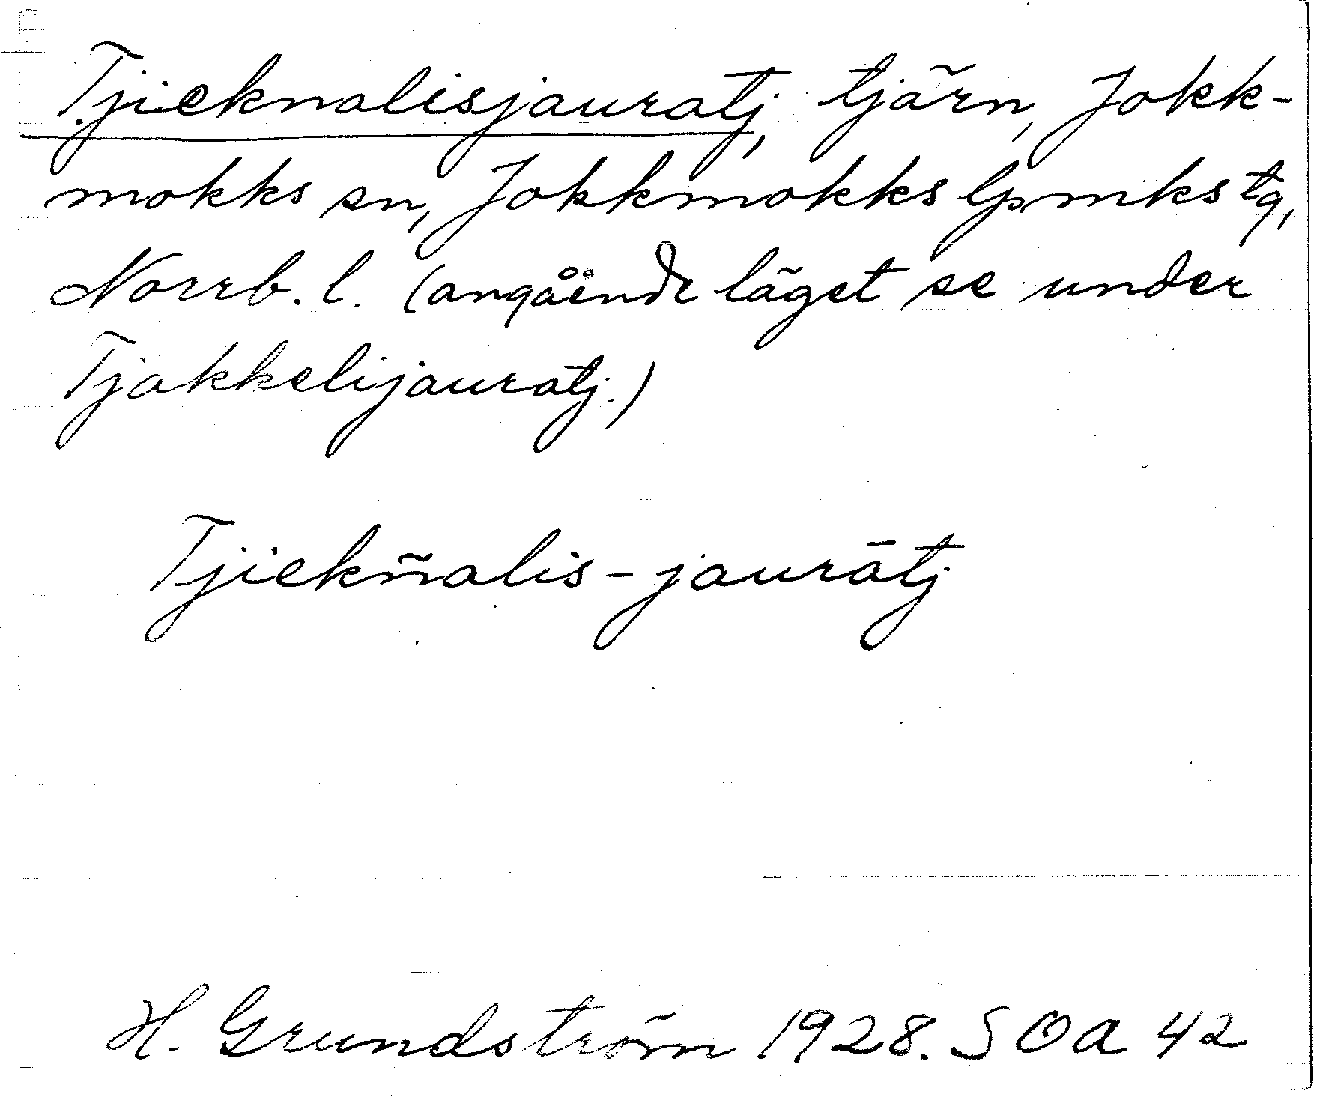 Tjieknalisjauratj, tjärn, Jokk-
mokks sn, Jokkmokks lpmks tg,
Norrb. l. (angående läget se under
Tjakkelijauratj.)
Tjiekñalis-jaurātj
H. Grundström 1928. SOA 42